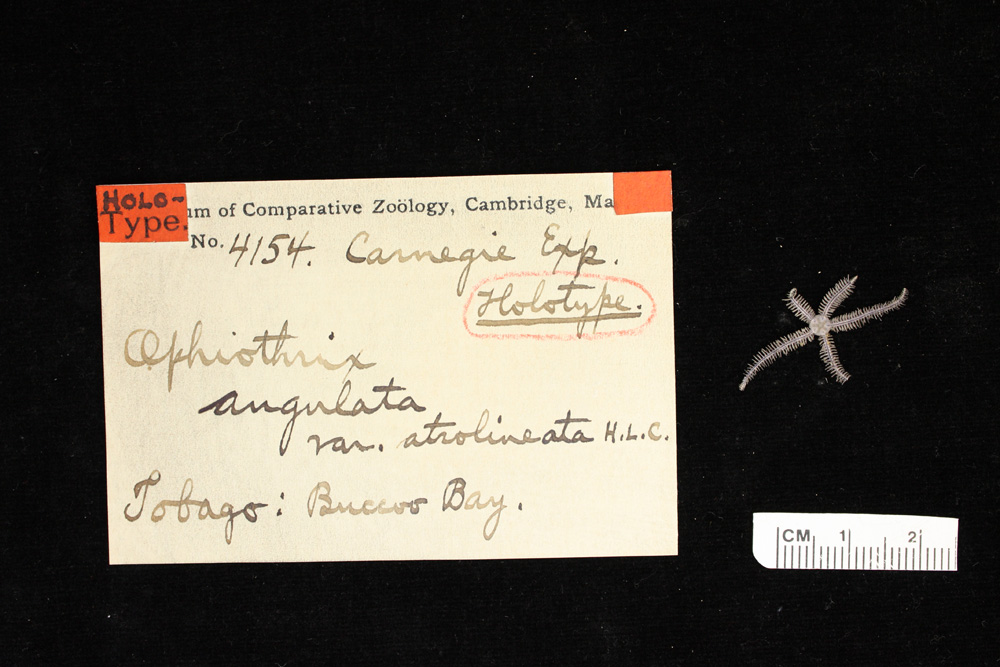 HOLO-
Type.
um of Comparative Zoölogy, Cambridge, Ma
No. 4154. Carnegie Exp.
Holotype.
Ophiothrix
angulata
var. atrolineata H.L.C.
Tobago: Buccoo Bay.
CM 1 2